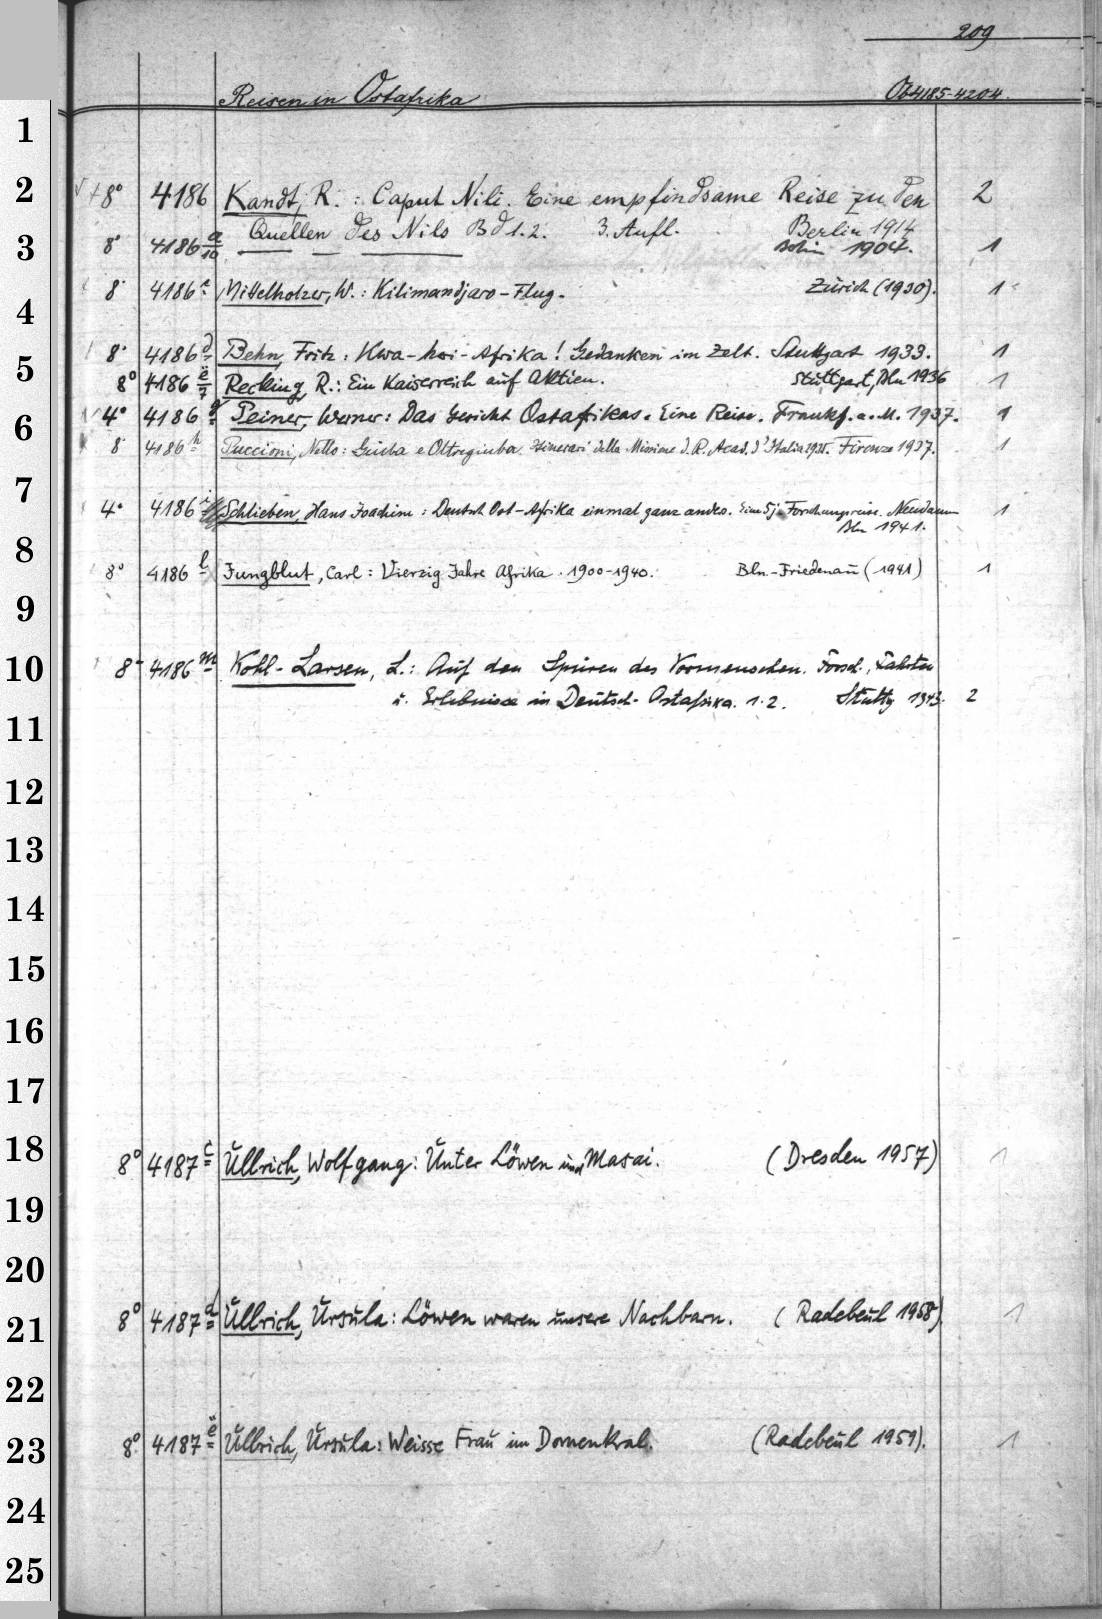 209
Reisen in Ostafrika Ob 4185-4204.
1
2 8° 4186 Kandt, R.: Caput Nili. Eine empfindsame Reise zu den 2
Quellen des Nils Bd 1.2. 3. Aufl. Berlin 1914
3 8° 4186 a/10 — — — Berlin 1904. 1
4 8° 4186 c Mittelholzer, W.: Kilimandjaro-Flug. Zürich (1930). 1
5 8° 4186 d Behn, Fritz: Kwa-heri-Afrika! Gedanken im Zelt. Stuttgart 1933. 1
8° 4186 e/7 Recking, R.: Ein Kaiserreich auf Aktien. Stuttgart, Bln 1936 1
6 4° 4186 g Peiner, Werner: Das Gesicht Ostafrikas. Eine Reise. Frankf. a. M. 1937. 1
8° 4186 h Puccioni, Nello: Giuba e Oltregiuba. Itinerari della Missione d. R. Acad. d'Italia 1935. Firenze 1937. 1
7 4° 4186 i Schlieben, Hans Joachim: Deutsch Ost-Afrika einmal ganz anders. Eine 5j. Forschungsreise. Neudamm
Bln 1941. 1
8 8° 4186 l Jungblut, Carl: Vierzig Jahre Afrika. 1900-1940. Bln.-Friedenau (1941) 1
9
10 8° 4186 m Kohl-Larsen, L.: Auf den Spuren des Vormenschen. Forsch., Fahrten
11 u. Erlebnisse in Deutsch-Ostafrika. 1.2. Stuttg 1943. 2
12
13
14
15
16
17
18 8° 4187 c Ullrich, Wolfgang: Unter Löwen und Masai. (Dresden 1957) 1
19
20
21 8° 4187 d Ullrich, Ursula: Löwen waren unsere Nachbarn. (Radebeul 1958) 1
22
23 8° 4187 e Ullrich, Ursula: Weisse Frau im Dornenkral. (Radebeul 1959). 1
24
25